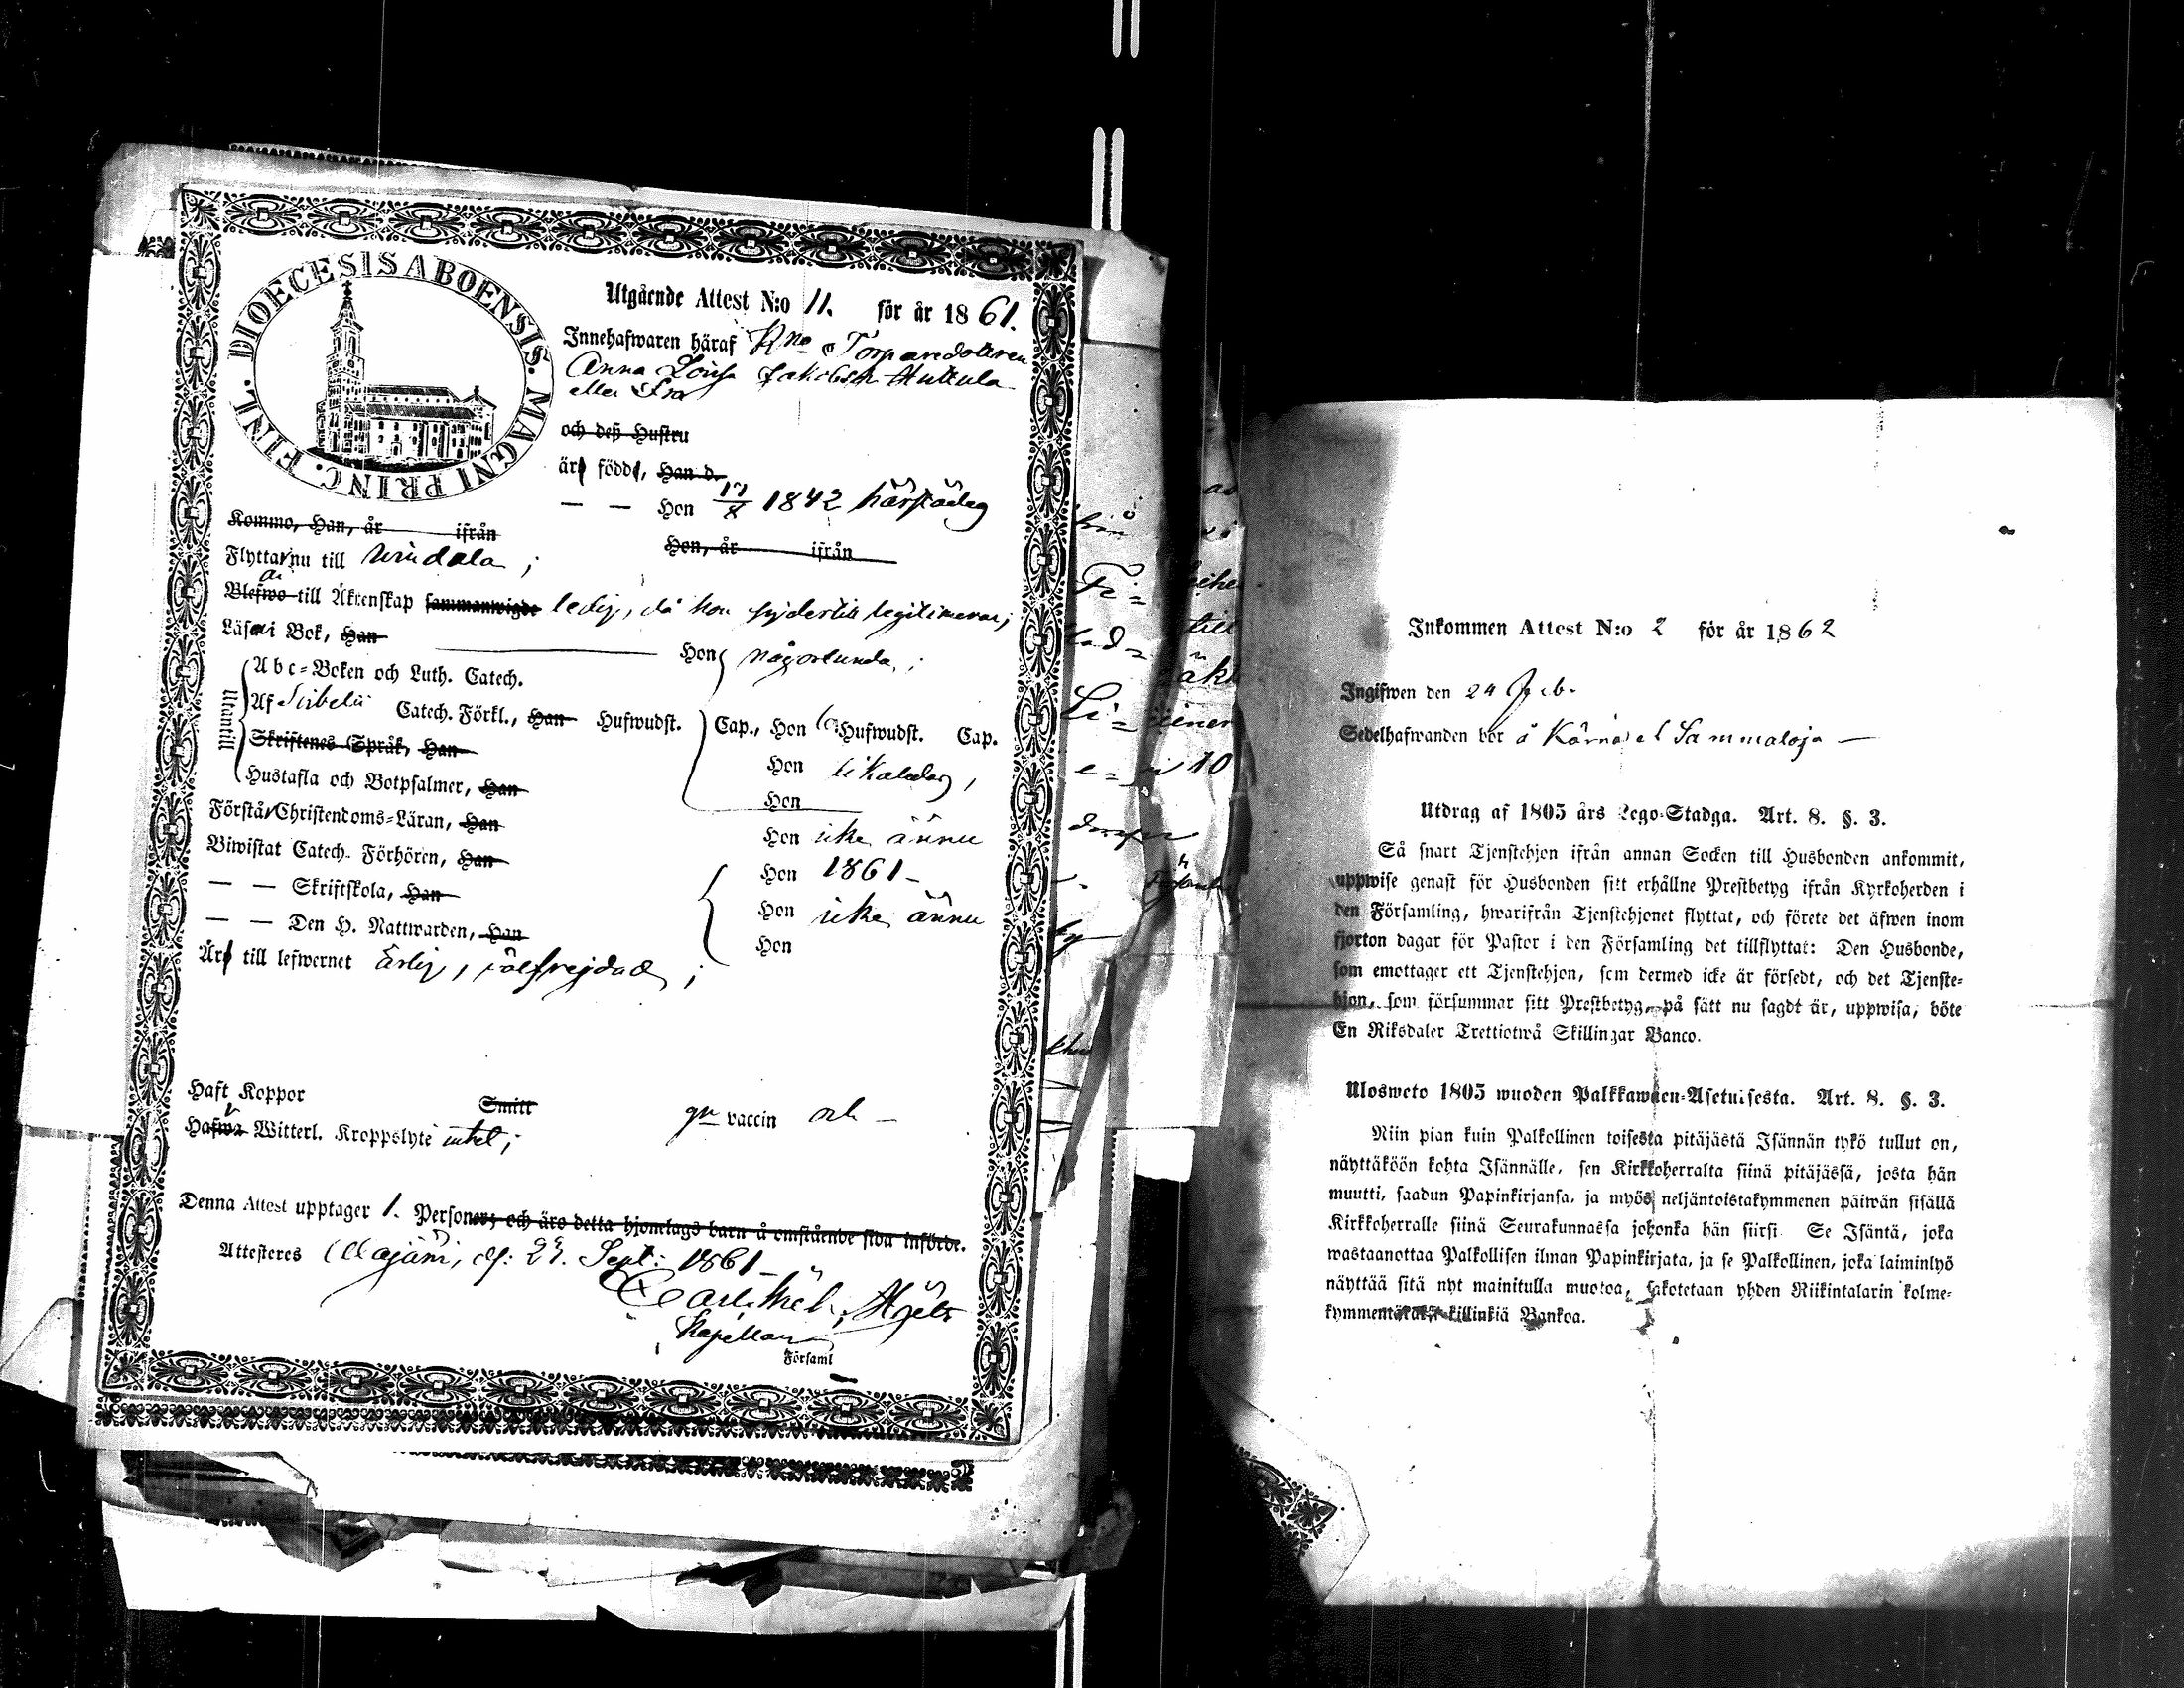 DIOECESIS ABOENSIS. MAGNI PRINC. FINL.
Utgående Attest N:o 11. för år 1861.
Innehafwaren häraf Torparedottren
Anna Lovisa Jakobsdr Huttula
eller
och deß Hustru
är född, Han d.
— — Hon 17/8 1842 härstädes
Kommo, Han, år ifrån
Hon, år ifrån
Flyttar nu till Urdiala;
Blefwo till Äktenskap sammanwigde ledig, då hon hijdertill legitimeras;
Läser i Bok, Han Hon någorlunda;
Utantill
Abc-Boken och Luth. Catech.
Af Sirbelii Catech. Förkl., Han Hufwudst. Cap., Hon 6 Hufwudst. Cap.
Skriftenes Språk, Han Hon likaledes,
Hustafla och Botpsalmer, Han Hon
Förstår Christendoms-Läran, Han Hon icke ännu
Biwistat Catech. Förhören, Han Hon 1861-
— — Skriftskola, Han Hon icke ännu
— — Den H. Nattwarden, Han Hon
Är till lefwernet ärlig, välfrejdad;
Haft Koppor Smitt gm vaccin och —
Hafwa Witterl. Kroppslyte intet;
Denna Attest upptager 1. Personer, och äro detta hjonelags barn å omstående sida införde.
Attesteres Sept: 1861-
Carl
Kapellan
Församl
Inkommen Attest N:o 2 för år 1862
Ingifwen den 24 Feb.
Sedelhafwanden bor å Kärna el Sammaloja —
Utdrag af 1805 års Lego-Stadga. Art. 8. §. 3.
Så snart Tjenstehjon ifrån annan Socken till Husbonden ankommit,
uppwise genast för Husbonden sitt erhållne Prestbetyg ifrån Kyrkoherden i
den Församling, hwarifrån Tjenstehjonet flyttat, och förete det äfwen inom
fjorton dagar för Pastor i den Församling det tillflyttat: Den Husbonde,
som emottager ett Tjenstehjon, som dermed icke är försedt, och det Tjenste-
hjon, som försummar sitt Prestbetyg, på sätt nu sagdt är, uppwisa, böte
En Riksdaler Trettiotwå Skillingar Banco.
Ulosweto 1805 wuoden Palkkawäen-Asetuisesta. Art. 8. §. 3.
Niin pian kuin Palkollinen toisesta pitäjästä Isännän tykö tullut on,
näyttäköön kohta Isännälle, sen Kirkkoherralta siinä pitäjässä, josta hän
muutti, saadun Papinkirjansa, ja myös neljäntoistakymmenen päiwän sisällä
Kirkkoherralle siinä Seurakunnassa johonka hän siirsi. Se Isäntä, joka
wastaanottaa Palkollisen ilman Papinkirjata, ja se Palkollinen, joka laiminlyö
näyttää sitä nyt mainitulla muotoa, sakotetaan yhden Riikintalarin kolme-
kymmentäkaksi killinkiä Bankoa.